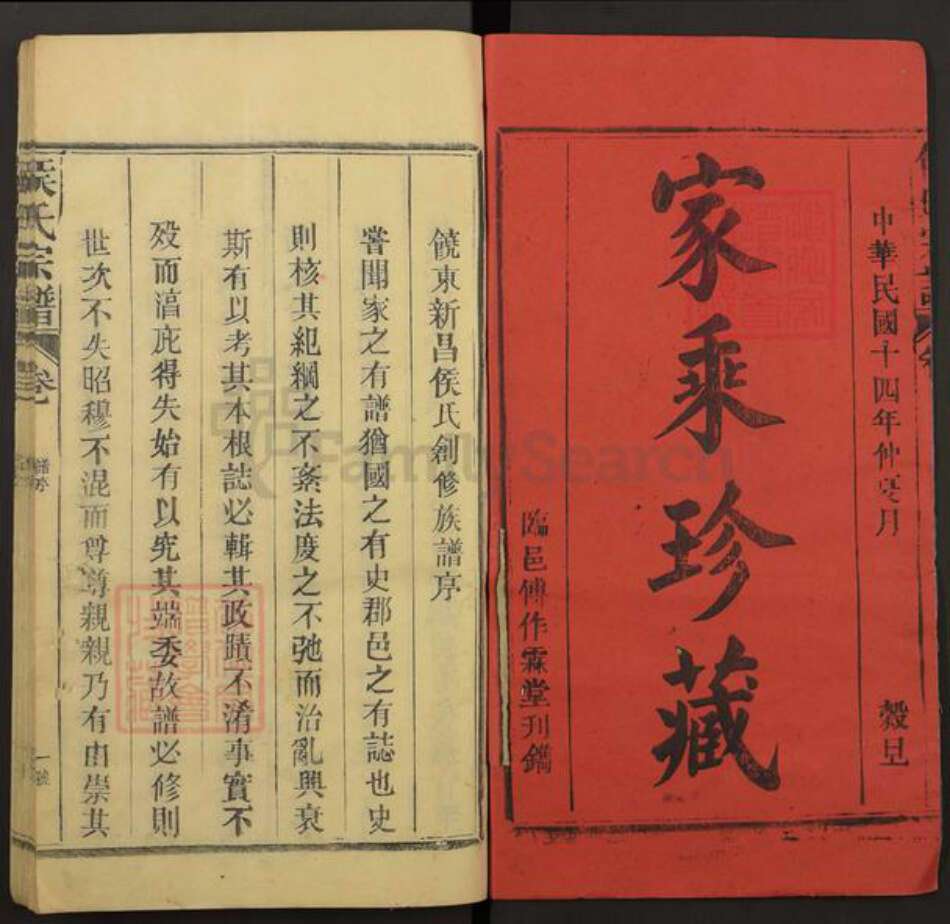 中華民國十四年仲夏月 穀旦
家乘珍藏
臨邑傅作霖堂刊鐫
饒東新昌侯氏創修族譜序
嘗聞家之有譜猶國之有史郡邑之有誌也史
則核其紀綱之不紊法度之不弛而治亂興衰
斯有以考其本根誌必輯其政蹟不淆事實不
殽而瀉庇得失始有以究其端委故譜必修則
世次不失昭穆不混而尊尊親親乃有由崇其
侯氏宗譜 卷 譜序 一
FamilySearch